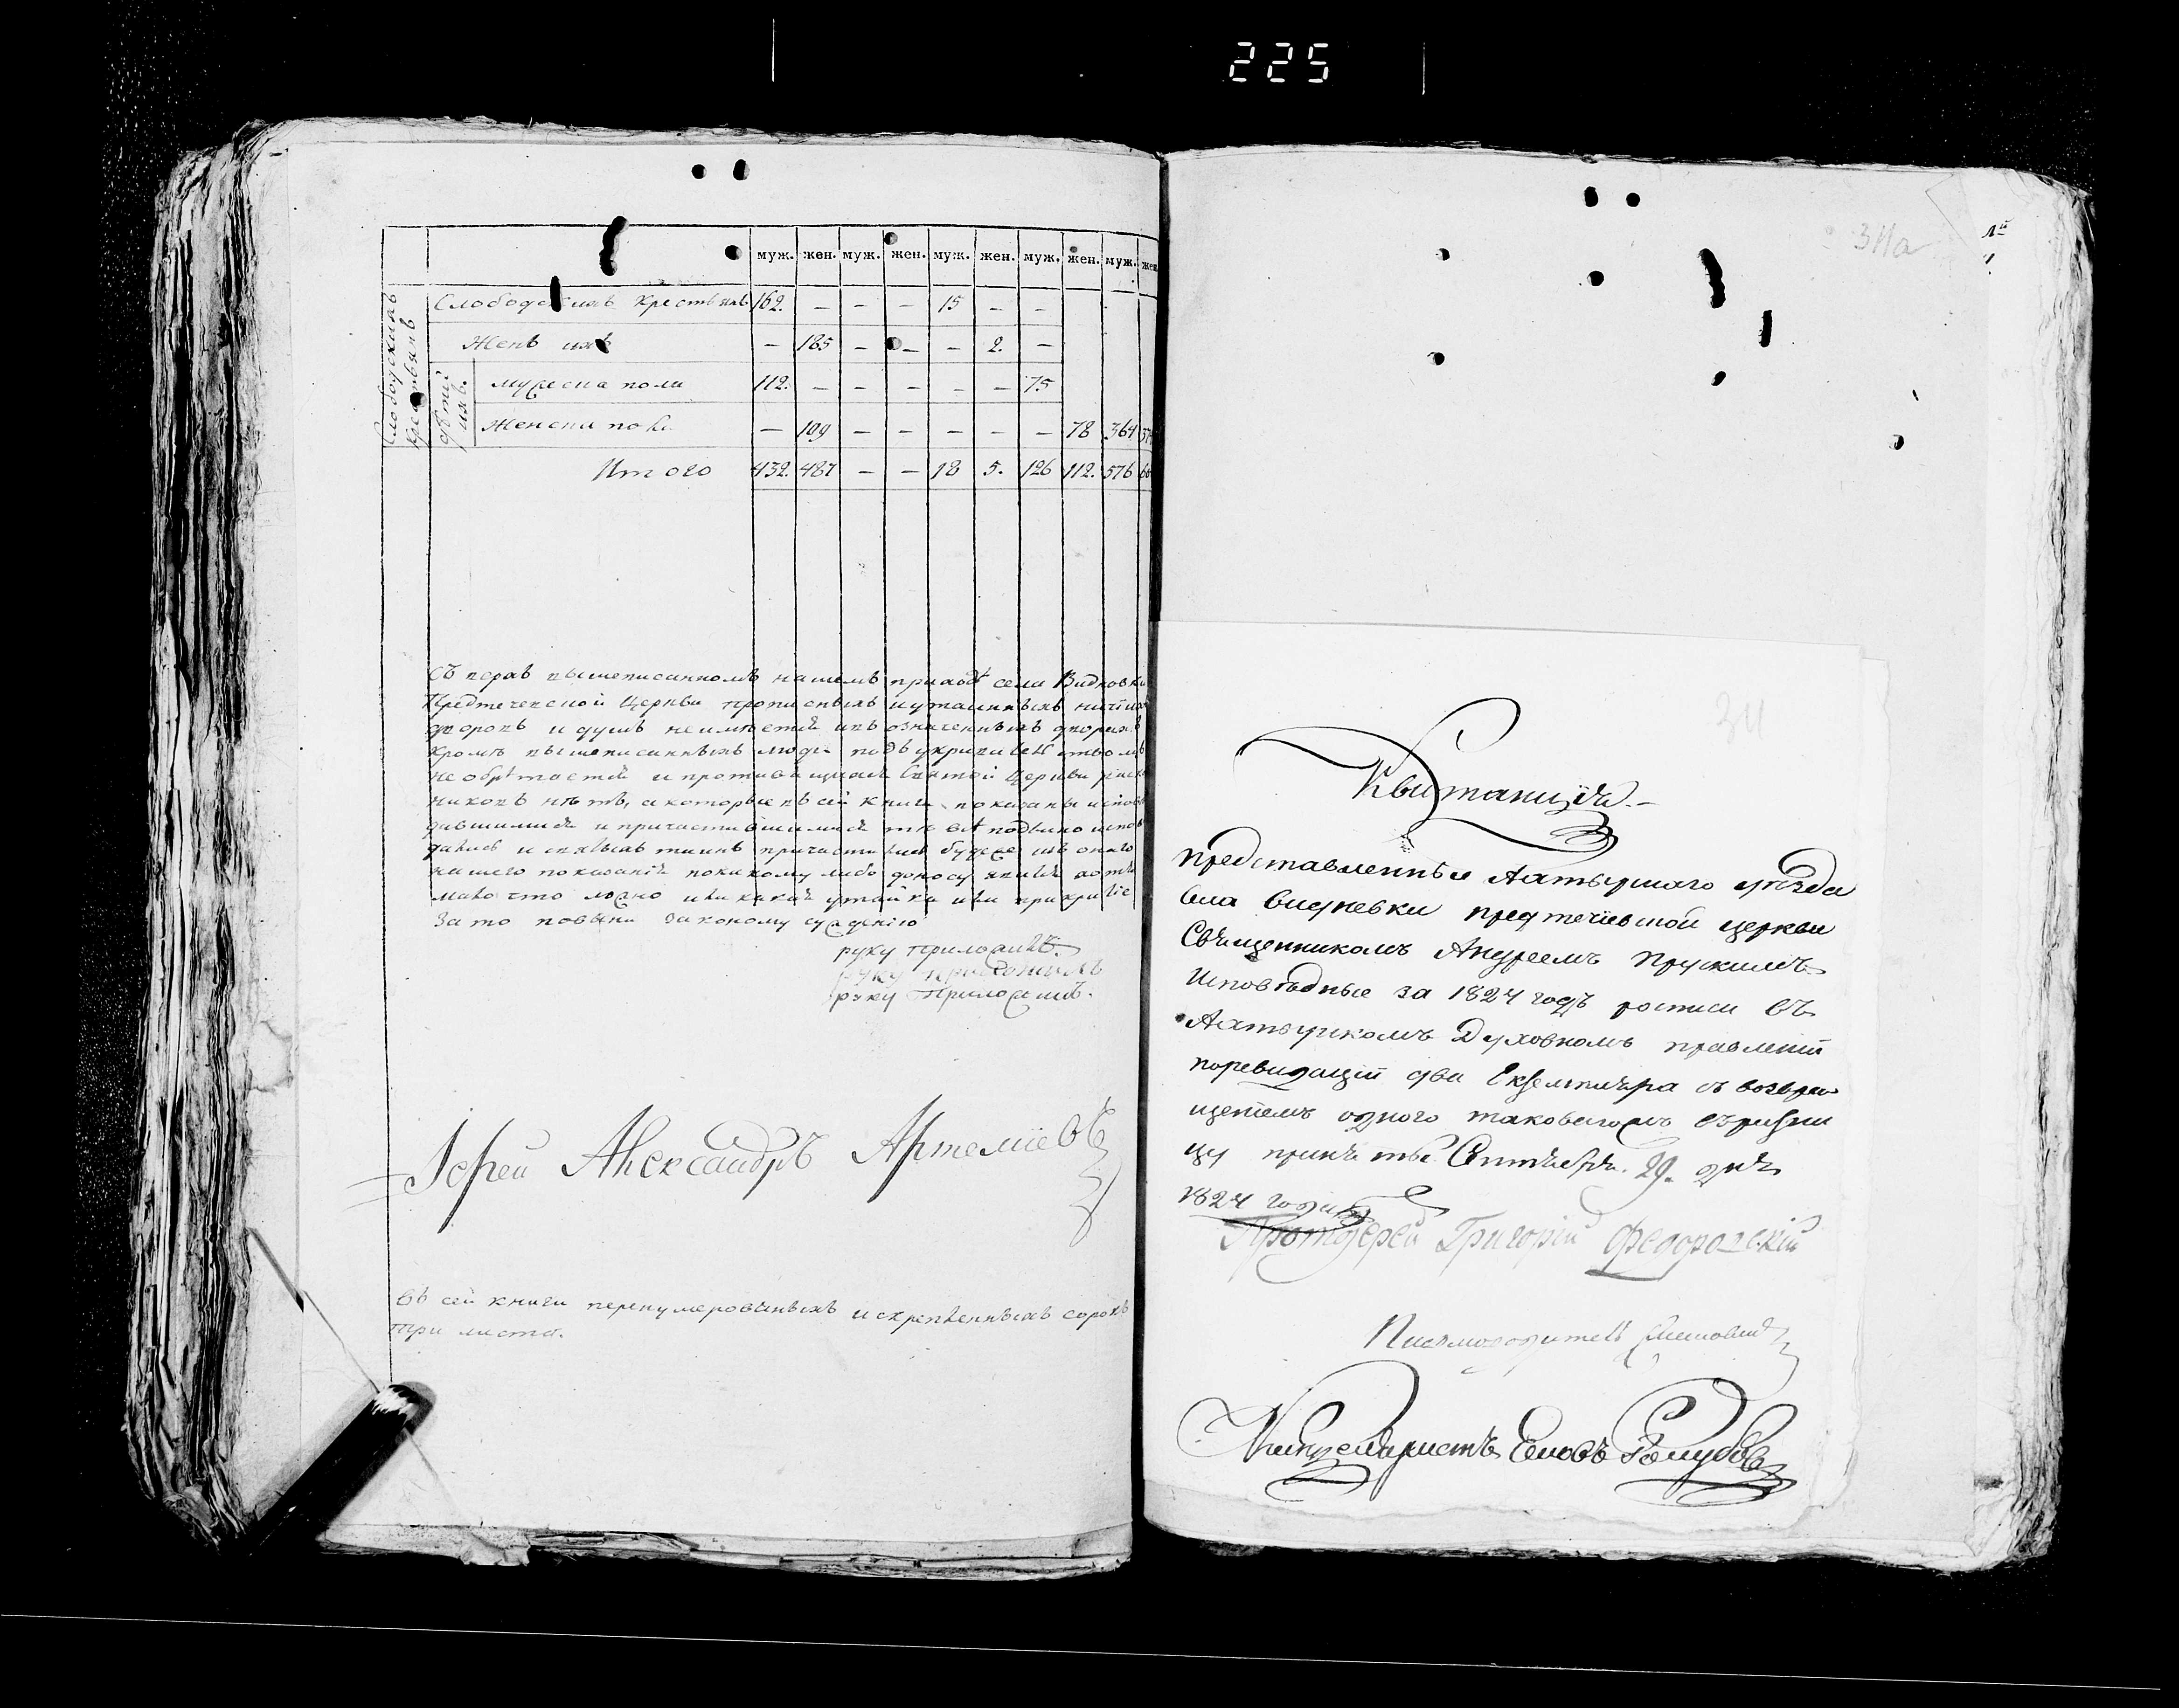 225
муж. жен. муж. жен. муж. жен. муж. жен. муж. жен.
Слободскихъ крестьянъ
Слободскихъ Крестьянъ 162. – – – 15 – –
Женъ ихъ – 185 – – – 2. –
дѣтей ихъ.
мужеска пола 112. – – – – – 75
Женска пола – 109 – – – – – 78 364
Итого 432. 487 – – 18 5. 126 112. 576
Въ вышеписанномъ нашемъ приходѣ села
Предтеченской Церкви прописныхъ и утаенныхъ
дворовъ и душъ неимѣется и въ означенныхъ дворахъ
Кромѣ вышеписанныхъ людей подъ укрывательствомъ
не обрѣтается и противящихся Святой Церкви
никовъ нѣтъ, а которые въ сей книги показаны
давшимися и причастившимися тѣ всѣ подлино
дались и святыхъ таинъ причастились будеже изъ онаго
нашего показанія покакому либо доносу явится хотя
мало что ложно или какая утайка или прикрытіе
За то повины законому сужденію
руку приложилъ
руку приложилъ
руку приложилъ.
Іерей Александръ Артеміевъ
Въ сей книги перенумерованныхъ и скрепленныхъ сорокъ
три листа.
311а
311
Квитанція.–
Представленные Ахтырскаго уѣзда
села предтечевской церкви
Священникомъ Андреемъ
Исповѣдные за 1824 годъ росписи въ
Ахтырскомъ Духовномъ правленіи
поревизаціи два Екземпляра съ возвра
щеніемъ одного таковагожъ въ ризни
цу приняты Сентября. 29. дня
1824 года
Протоіерей Григорій Федоровскій
Писмоводитель
Канцеляристъ Голубовъ